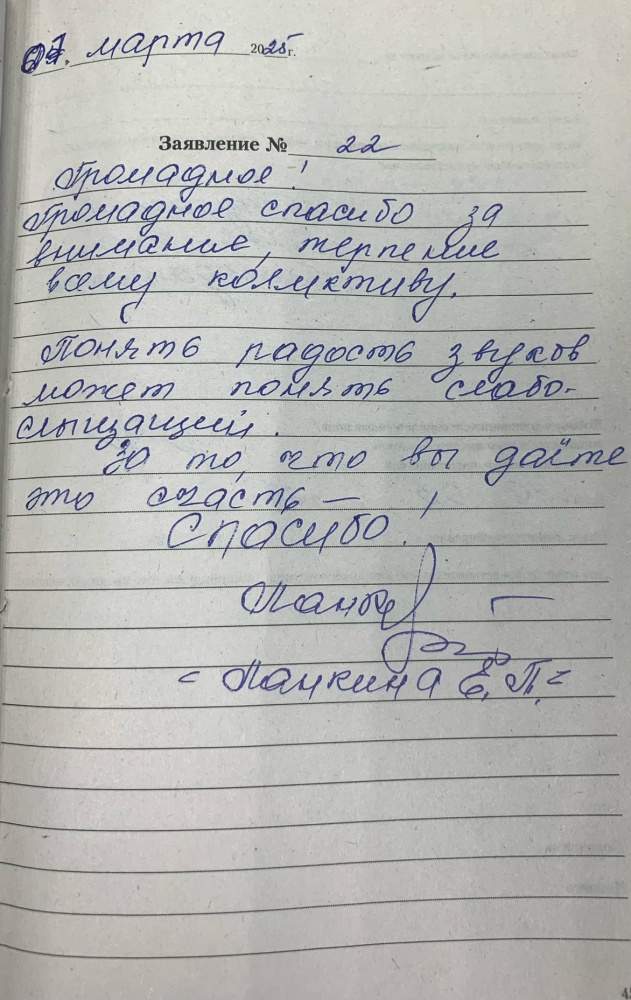 07. марта 2025 г.
Заявление № 22
Громадное!
Громадное спасибо за
внимание, терпение
всему коллективу.
Понять радость звуков
может понять слабо-
слышащий.
За то, что вы даёте
это счасть —
Спасибо!
Панк
= Панкина Е. П. =